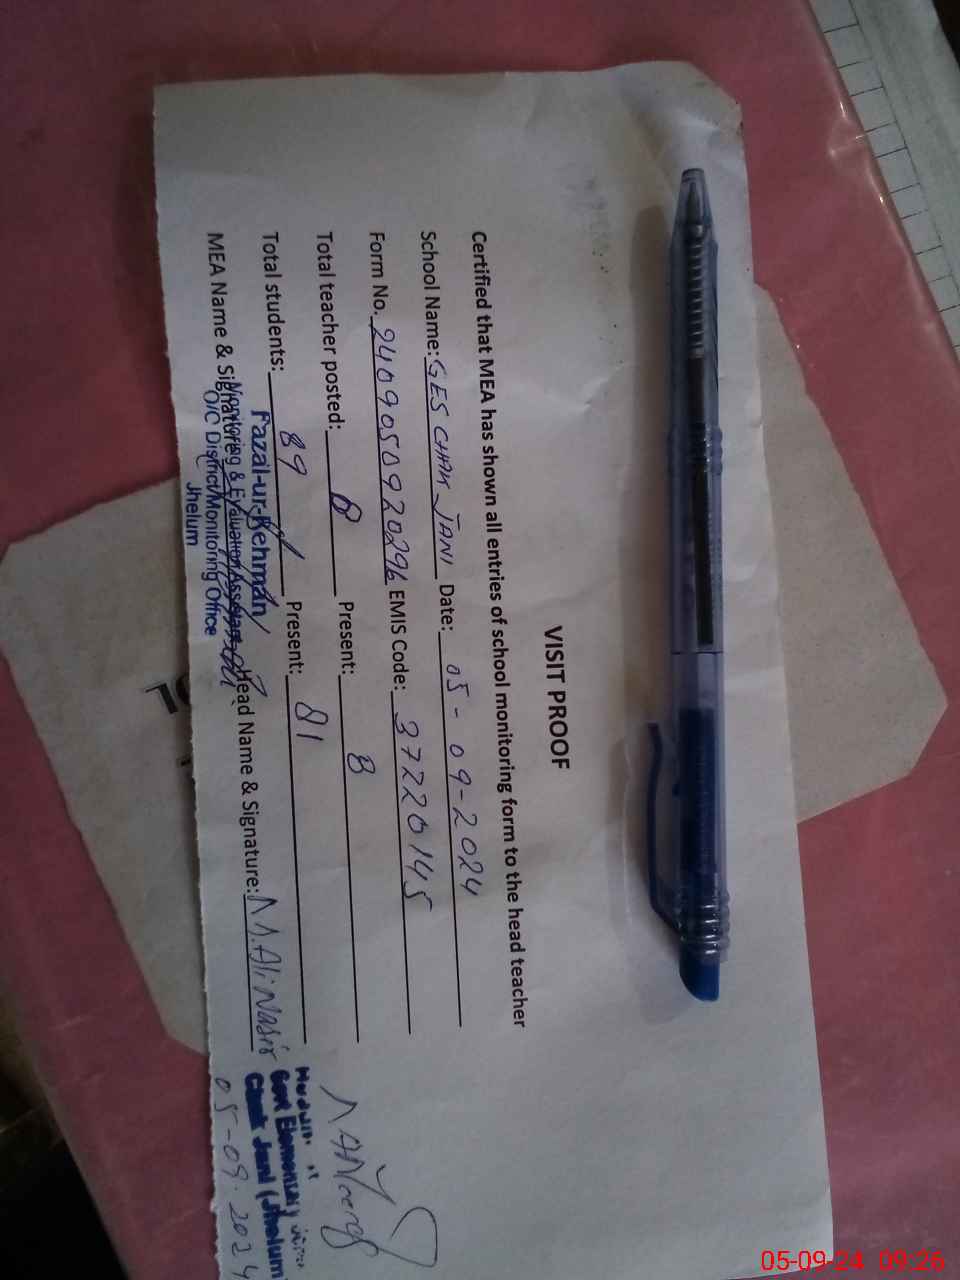 VISIT PROOF
Certified that MEA has shown all entries of school monitoring form to the head teacher
School Name: GES CHAK JANI Date: 05-09-2024
Form No. 2409050920296 EMIS Code: 37220145
Total teacher posted: 8 Present: 8
Total students: 89 Present: 81
MEA Name & Signature: Head Name & Signature: M. Ali Nasir
Fazal-ur-Rehman
Monitoring & Evaluation Assistant
O/C District Monitoring Office
Jhelum
Govt Elementary
Chak Jani (Jhelum)
05-09-2024
05-09-24 09:26